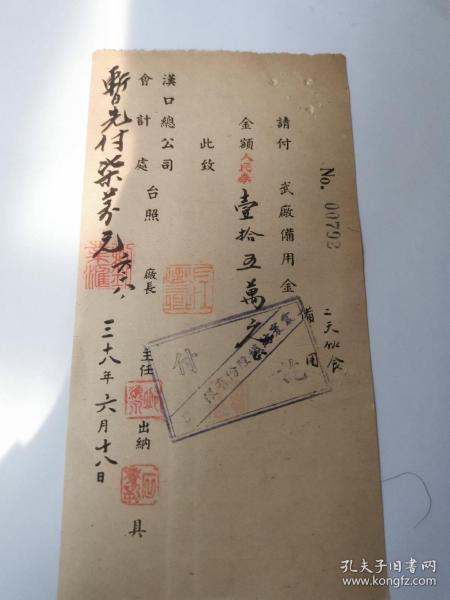 No. 00793
二天伙食
備用
請付 武廠備用金
金額人民券壹拾五萬元
此致
漢口總公司
會計處 台照
廠長 主任 出納 具
三十八年六月十八日
暫先付柒萬元 六.十八.
付訖
孔夫子旧书网
www.kongfz.com